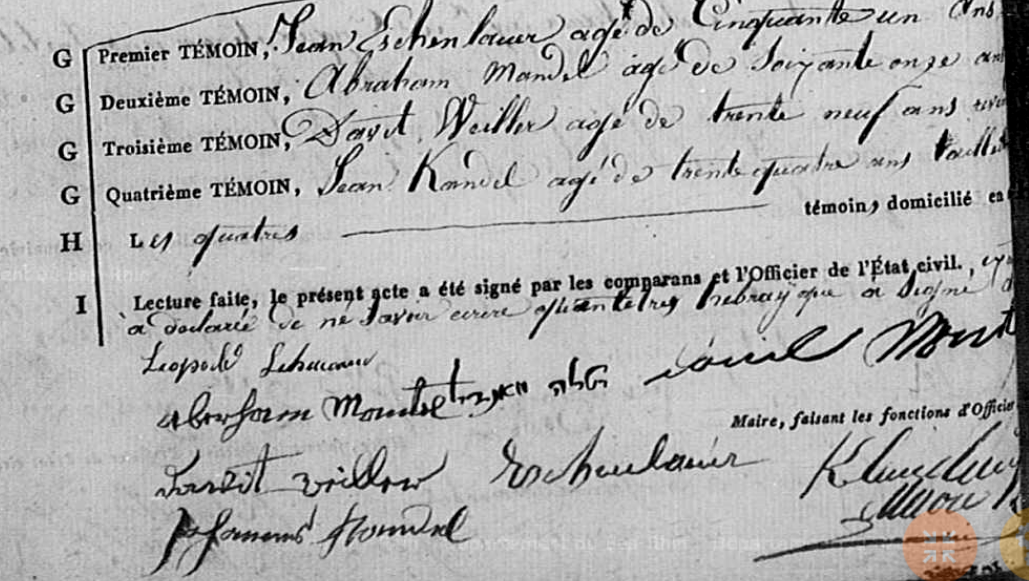 G Premier TÉMOIN, Jean Eschenlauer agé de Cinquante un ans
G Deuxième TÉMOIN, Abraham Mandel agé de Soixante onze an
G Troisième TÉMOIN, Davit Weiller agé de trente neuf ans
G Quatrième TÉMOIN, Jean Kandel agé de trente quatre ans
témoins domicilié en
H Les quatres
I Lecture faite, le présent acte a été signé par les comparans et l'Officier de l'État civil.,
a declarée de ne savoir ecrire quen lettres hebrayque a Signé
Leopold
Aberham Mantel
Maire, faisant les fonctions d'Officier
Davit Weiller Eschenlauer
Johannes Kandel